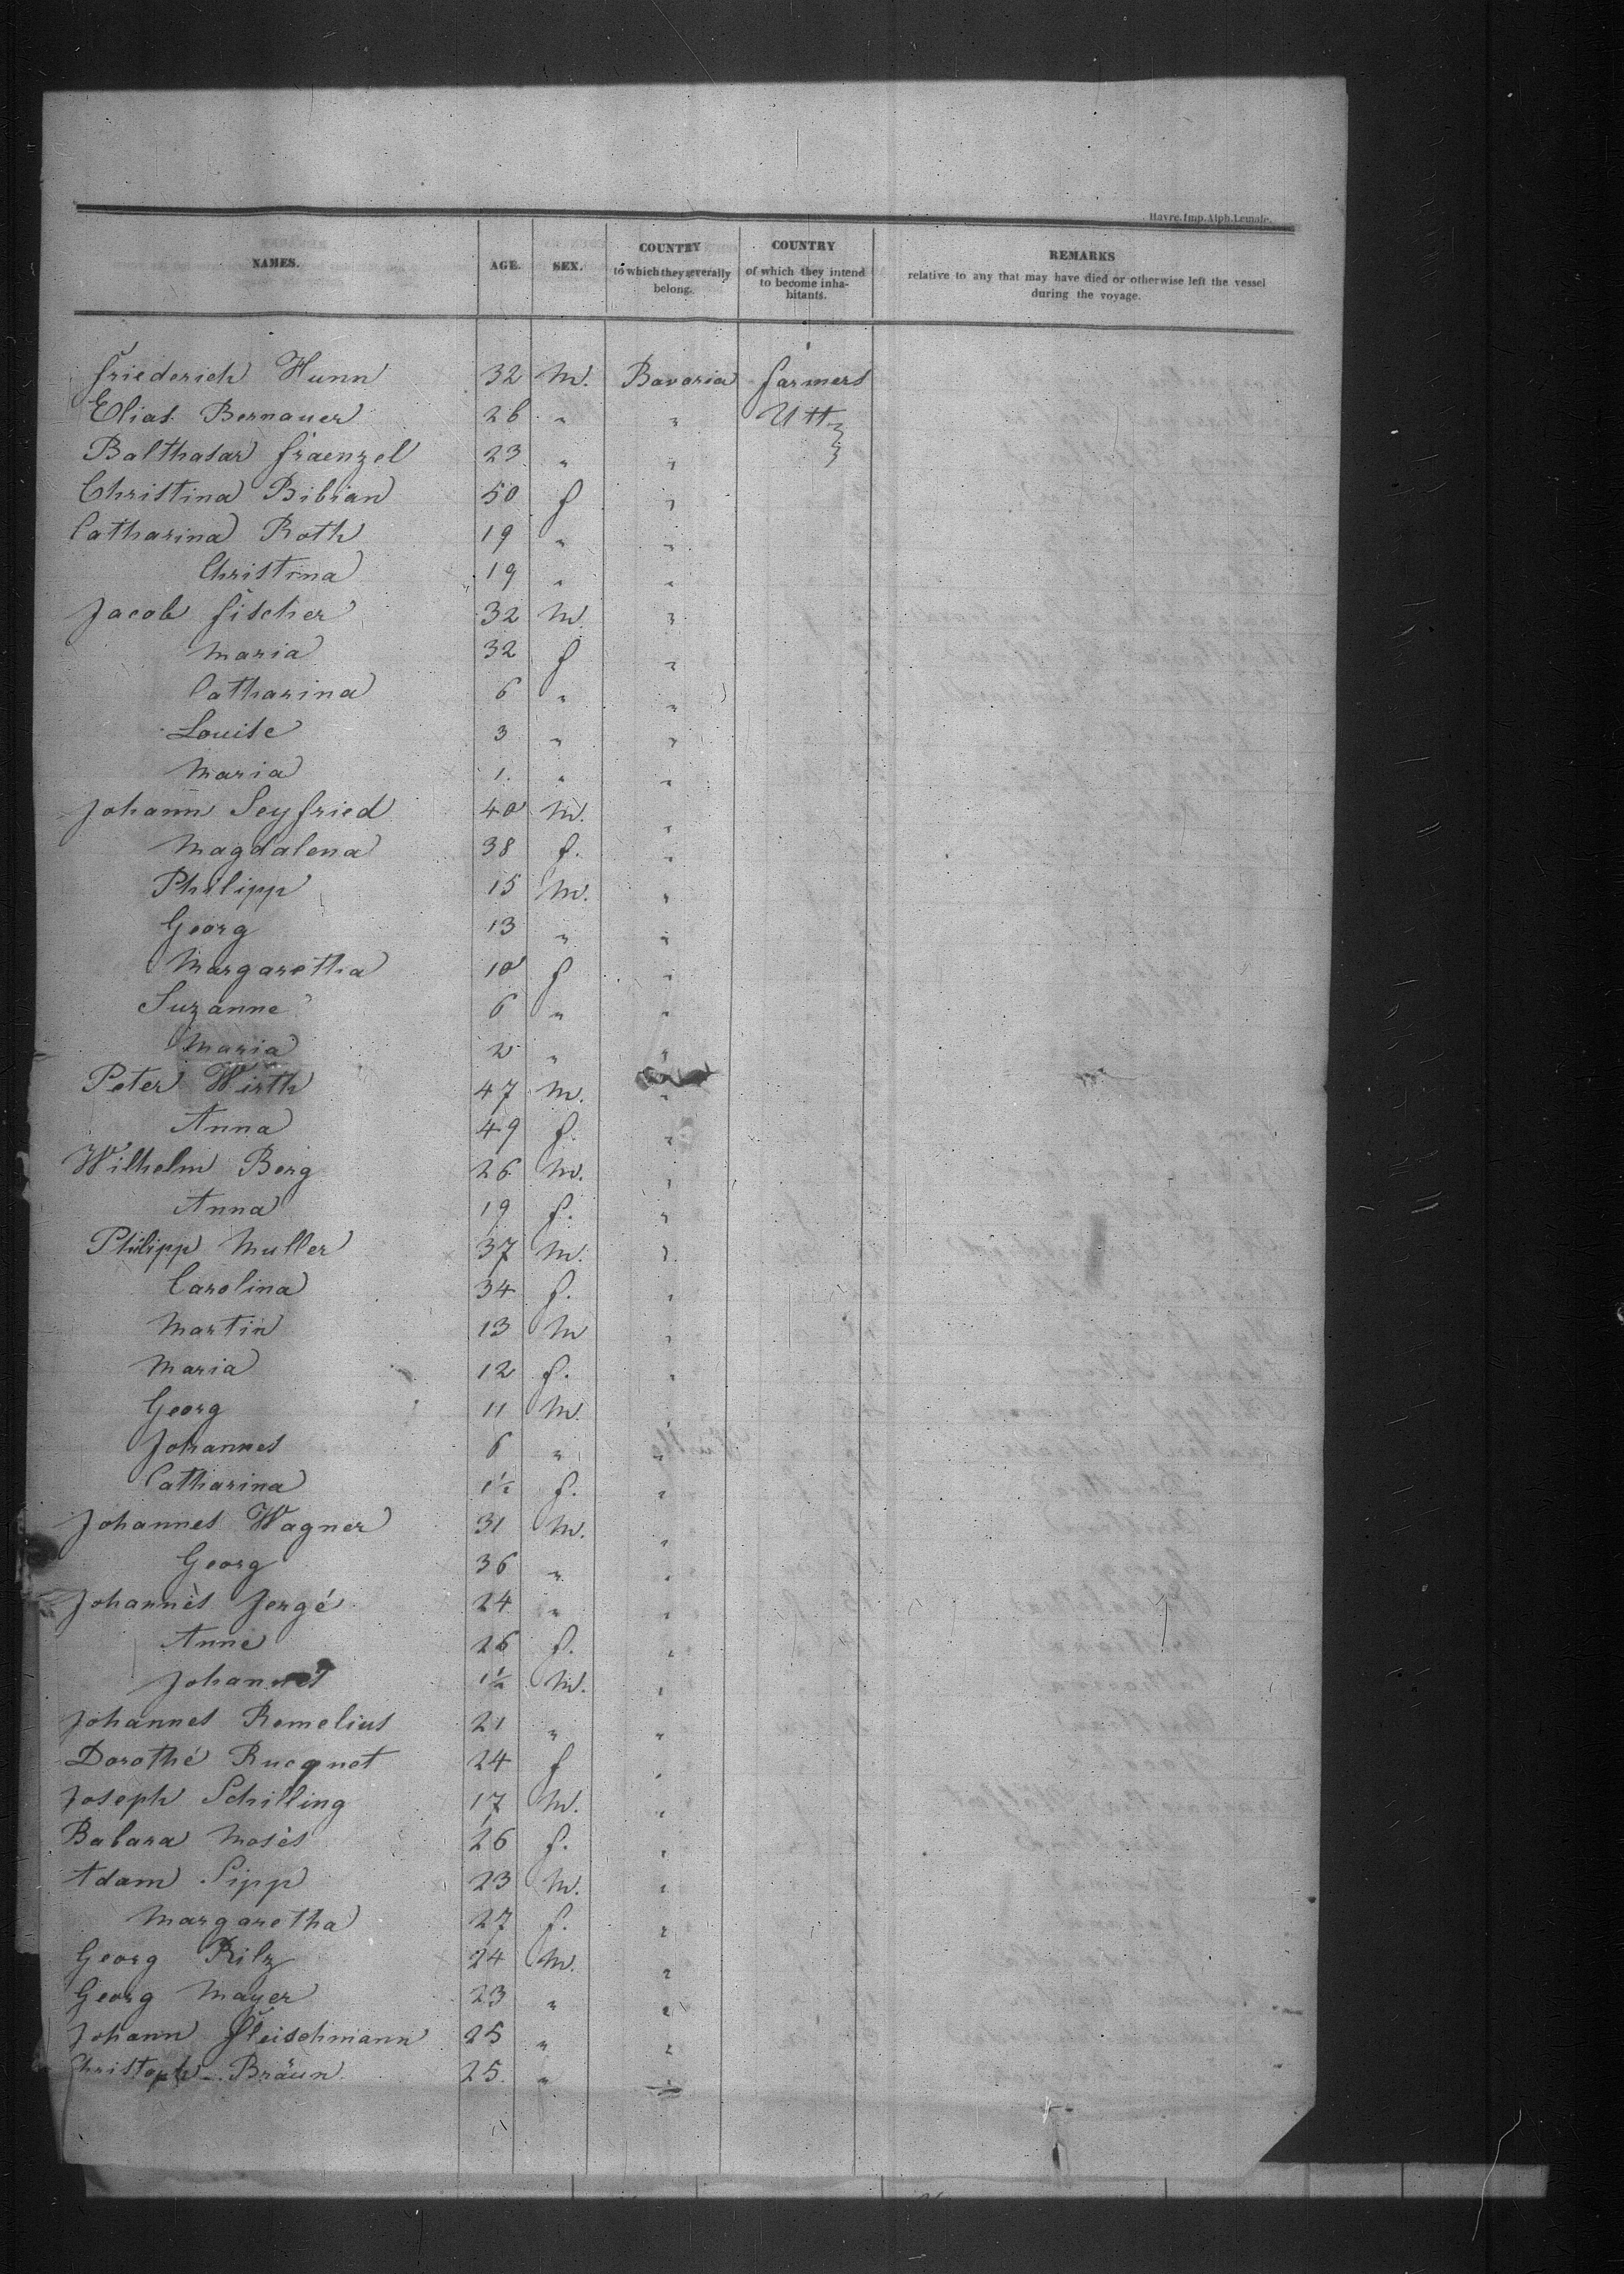 Havre. Imp. Alph. Lemale.
NAMES. AGE. SEX. COUNTRY to which they severally belong. COUNTRY of which they intend to become inhabitants. REMARKS relative to any that may have died or otherwise left the vessel during the voyage.
Friederich Hunn 32 M. Bavaria farmers
Elias Bernauer 26 " " U
Balthasar Fraenzel 23 " "
Christina Bibian 50 f "
Catharina Roth 19 " "
Christina 19 " "
Jacob Fischer 32 M "
Maria 32 f "
Catharina 6 " "
Louise 3 " "
Maria 1. " "
Johann Seyfried 40 M. "
Magdalena 38 f. "
Philipp 15 M. "
Georg 13 " "
Margaretha 10 f "
Suzanne 6 " "
Maria 2 " "
Peter Wirth 47 M. "
Anna 49 f. "
Wilhelm Berg 26 M. "
Anna 19 f. "
Philipp Muller 37 M. "
Carolina 34 f. "
Martin 13 M "
Maria 12 f. "
Georg 11 M "
Johannes 6 " "
Catharina 1½ f. "
Johannes Wagner 31 M. "
Georg 36 " "
Johannès Jergé 24 " "
Anne 26 f. "
Johannes 1½ M. "
Johannes Remelius 21 " "
Dorothé Rucquet 24 f "
Joseph Schilling 17 M. "
Babara Mosès 26 f. "
Adam Sipp 23 M. "
Margaretha 27 f. "
Georg Rilz 24 M. "
Georg Mayer 23 " "
Johann Fleischmann 25 " "
Christoph Bräun 25. " "